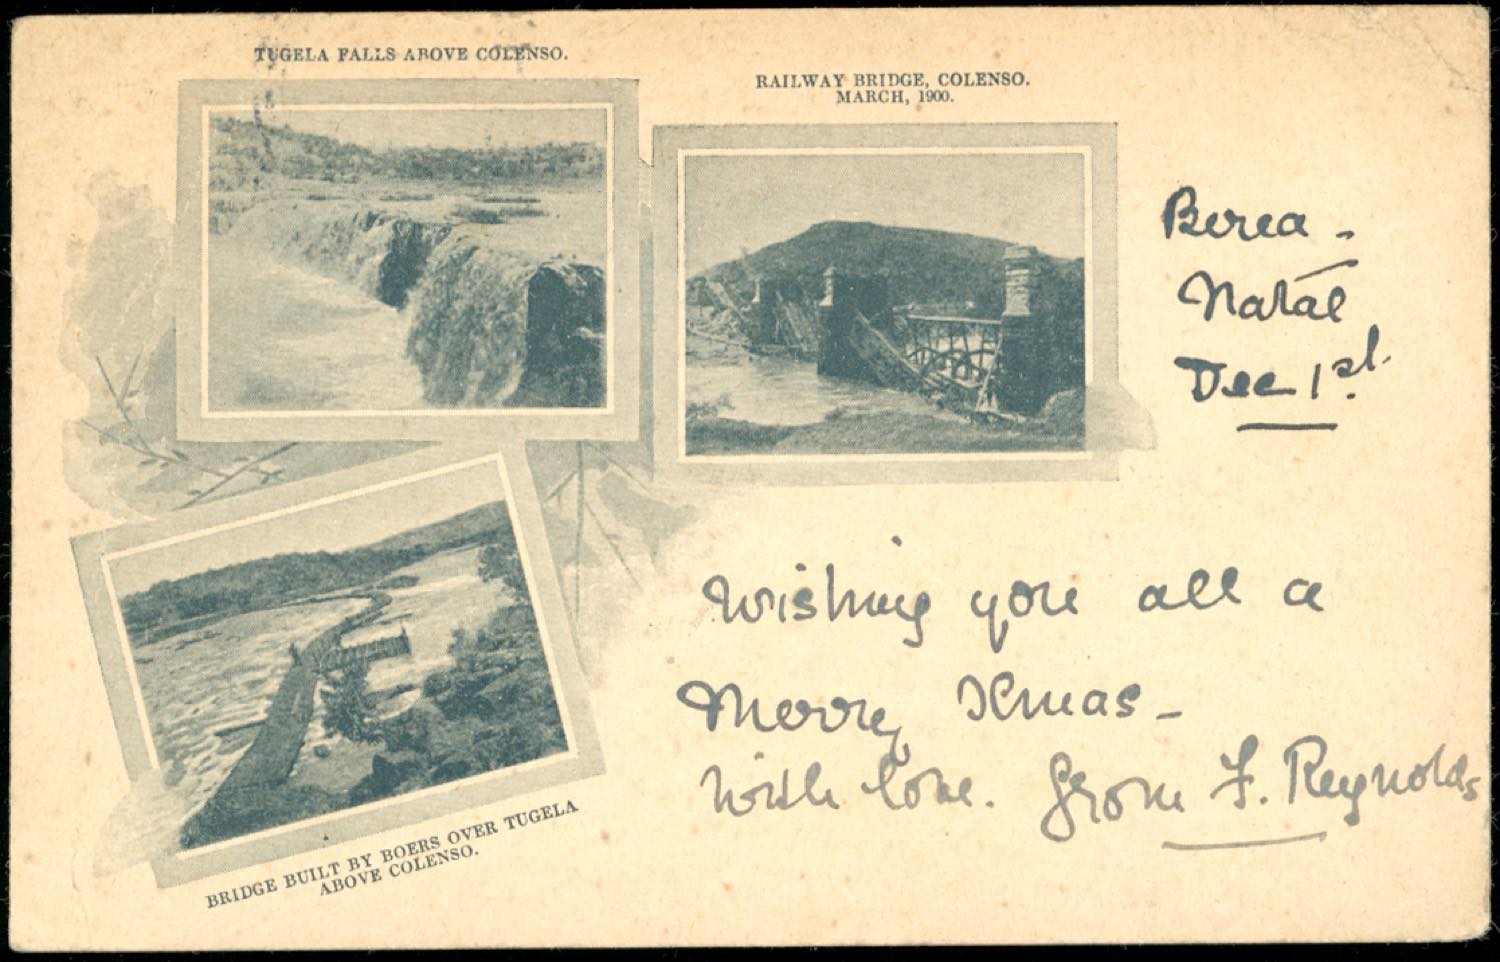 TUGELA FALLS ABOVE COLENSO.
RAILWAY BRIDGE, COLENSO.
MARCH, 1900.
Berea -
Natal
Dec 1st.
Wishing you all a
Merry Xmas -
With love. from F. Reynolds
BRIDGE BUILT BY BOERS OVER TUGELA
ABOVE COLENSO.